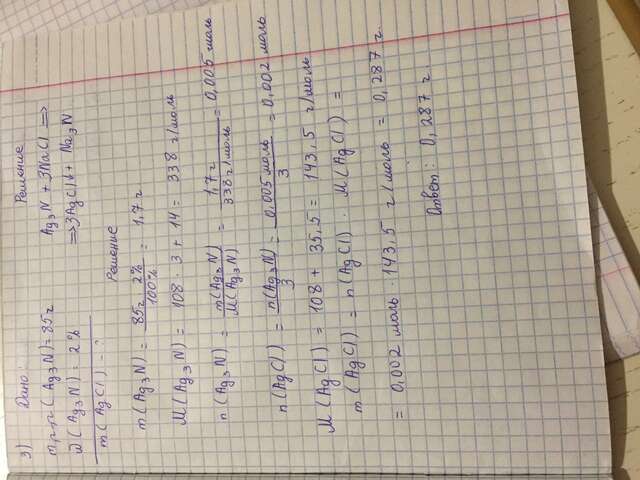 3) Дано: Решение
m р-р (Ag₃N) = 85 г Ag₃N + 3NaCl =>
ω (Ag₃N) = 2% => 3AgCl↓ + Na₃N
m (AgCl) - ? Решение
m (Ag₃N) = 85г · 2% / 100% = 1,7 г
M (Ag₃N) = 108 · 3 + 14 = 338 г/моль
n (Ag₃N) = m(Ag₃N) / M(Ag₃N) = 1,7 г / 338 г/моль = 0,005 моль
n (AgCl) = n(Ag₃N) / 3 = 0,005 моль / 3 = 0,002 моль
M (AgCl) = 108 + 35,5 = 143,5 г/моль
m (AgCl) = n (AgCl) · M (AgCl) =
= 0,002 моль · 143,5 г/моль = 0,287 г.
Ответ: 0,287 г.